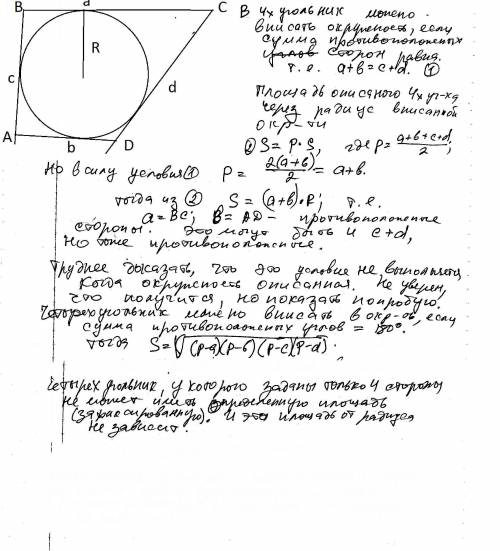 B a C
R
c
d
A
b
D
В 4х угольник можно
вписать окружность, если
сумма противоположных
углов сторон равна.
т.е. a+b=c+d. ①
Площадь описаного 4х уг-ка
через радиус вписанной
окр-ти
② S = P·S, где P = a+b+c+d / 2;
Но в силу условия ① P = 2(a+b) / 2 = a+b.
тогда из ② S = (a+b)·R; т.е.
a = BC; B = AD - противоположные
стороны. Это могут быть и c+d,
но тоже противоположные.
Труднее доказать, что это условие не выполняется,
когда окружность описанная. Не уверен,
что получится, но показать попробую.
Четырехугольник можно вписать в окр-ть, если
сумма противоположных углов = 180°.
тогда S = √(p-a)(p-b)(p-c)(p-d).
Четырехугольник, у которого заданы только 4 стороны
не может иметь определенную площадь
(зафиксированную). И эта площадь от радиуса
не зависит.